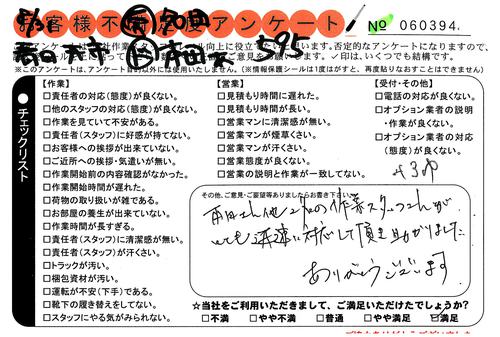 お客様不満足度アンケート
No 060394
※このアンケートは、アンケート目的以外には使用いたしません。(※情報保護シールは1度がすと、再度貼りなおすことはできません)
●チェックリスト
【作業】
□責任者の対応(態度)が良くない。
□他のスタッフの対応(態度)が良くない。
□作業を見ていて不安がある。
□責任者(スタッフ)に好感が持てない。
□お客様への挨拶が出来ていない。
□ご近所への挨拶・気遣いが無い。
□作業開始前の内容確認がなかった。
□作業開始時間が遅れた。
□荷物の取り扱いが雑である。
□お部屋の養生が出来ていない。
□作業時間が長すぎる。
□責任者(スタッフ)に清潔感が無い。
□責任者(スタッフ)が汗くさい。
□トラックが汚い。
□梱包資材が汚い。
□運転が不安(下手)である。
□靴下の履き替えをしてない。
□スタッフにやる気がみられない。
【営業】
□見積もり時間に遅れた。
□見積もり時間が長い。
□営業マンに清潔感が無い。
□営業マンが煙草くさい。
□営業マンが汗くさい。
□営業態度が良くない。
□営業の説明と作業が一致してない。
【受付・その他】
□電話の対応が良くない。
□オプション業者の説明
・作業が良くない。
□オプション業者の対応
(態度)が良くない。
その他、ご意見・ご要望等ありましたらお書き下さい。
他2名の作業スタッフさんが
とても迅速に対応して頂き助かりました
ありがとうございます
☆当社をご利用いただきまして、ご満足いただけたでしょうか?
□不満 □やや不満 □普通 □やや満足 ☑満足